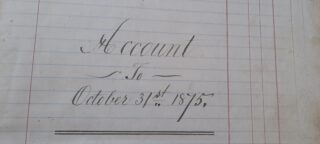 Account
To
October 31st 1875.